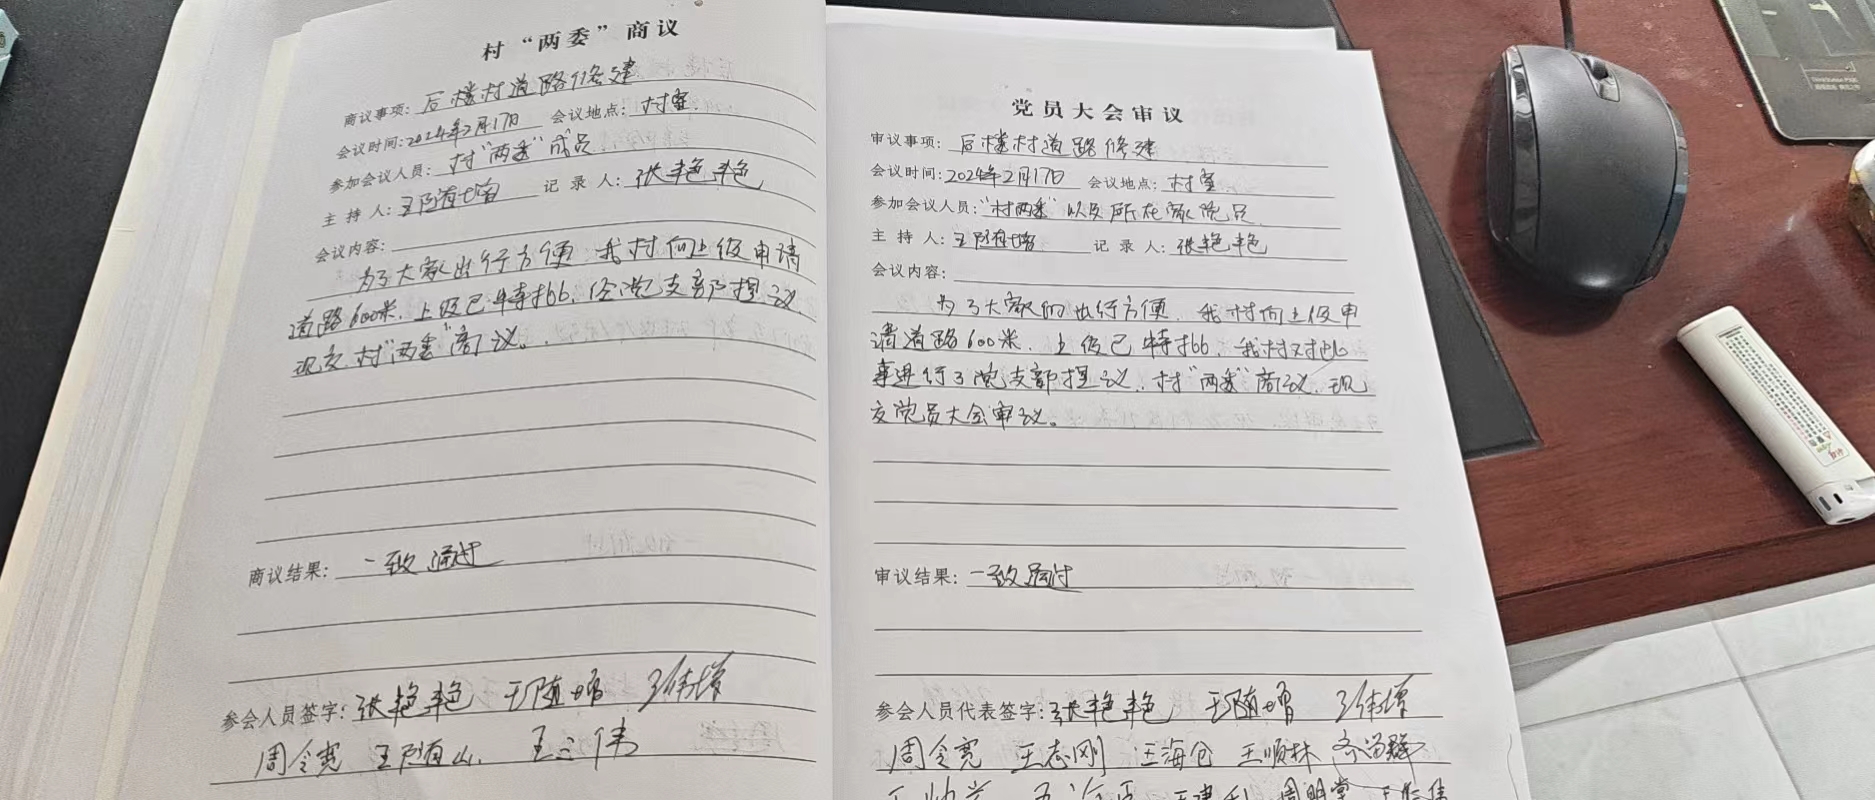 村“两委”商议
商议事项：后楼村道路修建
会议时间：2024年2月17日 会议地点：村室
参加会议人员：村“两委”成员
主持人：王随增 记录人：张艳艳
会议内容：
为了大家出行方便，我村向上级申请
道路600米，上级已特批，经党支部提议，
现交村“两委”商议。
商议结果：一致通过
参会人员签字：张艳艳 王随增 王伟增
周令宽 王随山 王三伟
党员大会审议
审议事项：后楼村道路修建
会议时间：2024年2月17日 会议地点：村室
参加会议人员：“村两委”以及所在家党员
主持人：王随增 记录人：张艳艳
会议内容：
为了大家们出行方便，我村向上级申
请道路600米，上级已特批，我村对此
事进行了党支部提议，村“两委”商议，现
交党员大会审议。
审议结果：一致通过
参会人员代表签字：张艳艳 王随增 王伟增
周令宽 王志刚 王海仓 王顺林
周明堂